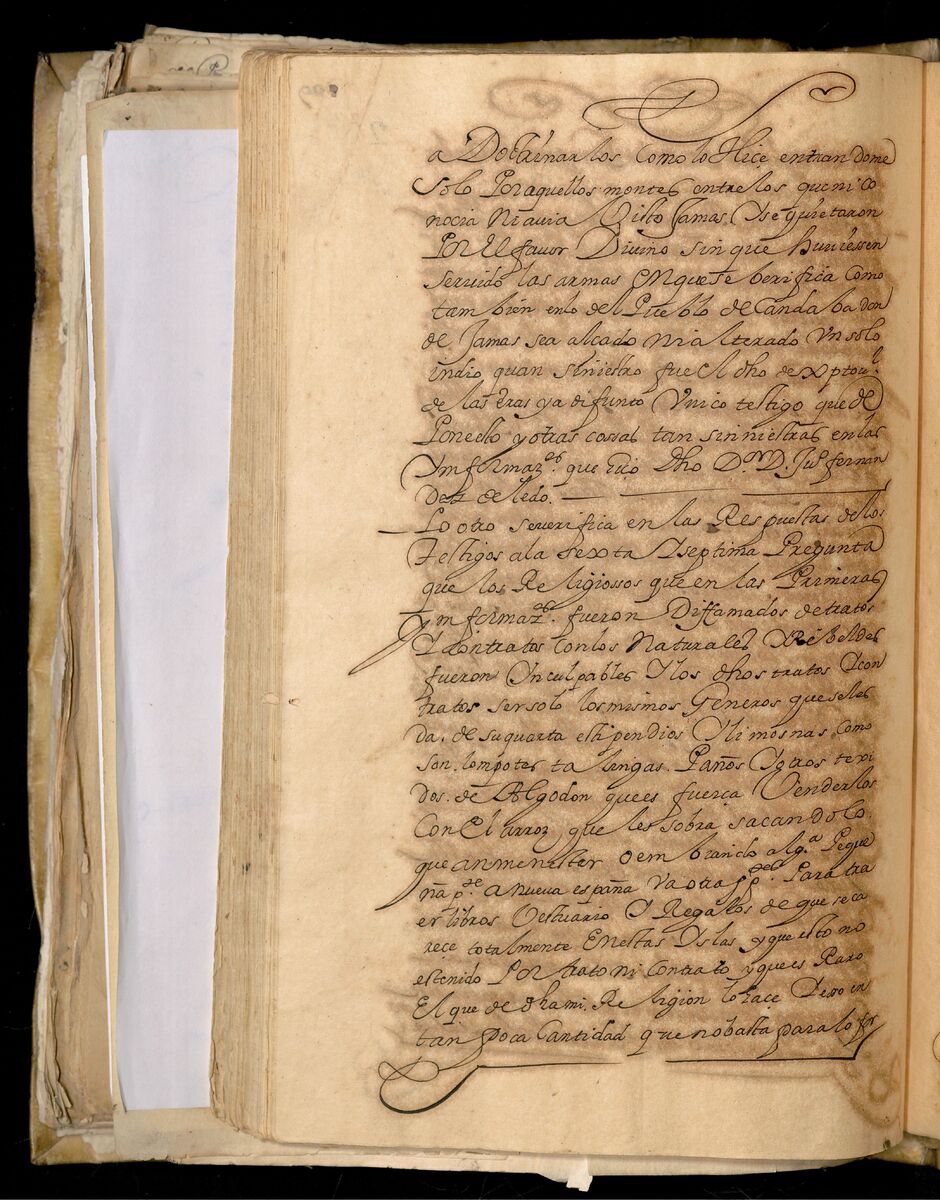 a Doctrinarlos Como lo Hice entrandome
Solo Por aquellos montes entre los que ni Co
nocia Ni auia Visto Jamas Y se quietaron
Por El fauor Diuino sin que huuiessen
seruido las armas En que se berifica Como
tambien en lo del Pueblo de Candaba don
de Jamas sea alcado Ni alterado Vn solo
indio quan siniestro fue El dho de Xptoul
de las eras ya difunto Vnico testigo que de
Pone esto y otras cossas tan sinniestras en las
Ynformaz.es que hiço Dho D.or D. Ju.o fernan
dez de ledo.
Lo otro se uerifica en las Respuestas de los
Testigos a la sexta Y septima Pregunta
que los Religiossos que en las Primeras
Ynformaz.es fueron Diffamados de tratos
Y Contratos Con los Naturales Rebeldes
fueron Ynculpables Y los dhos tratos Y con
tratos ser solo los mismos Generos que se les
da. de su quarta estipendios Y limosnas. Como
son. lompotes talingas. Paños Y otros texi
dos. de Algodon que es fuerça Venderlos
Con El arroz que les sobra sacando lo.
que an menester o embiando alg.a Peque
ña p.te a nueua españa Para tra
er libros Vestuario Y Regalos de que se ca
rece totalmente En estas Yslas y que esto no
es tenido Por trato ni Contrato y que es Raro
El que de dha mi. Religion lo hace Y esso en
tan Poca Cantidad que no basta para lo for